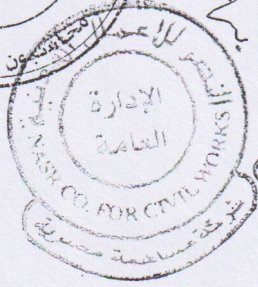 النصر للاعمال المدنية
الإدارة
العامة
NASR CO. FOR CIVIL WORKS
شركة مساهمة مصرية